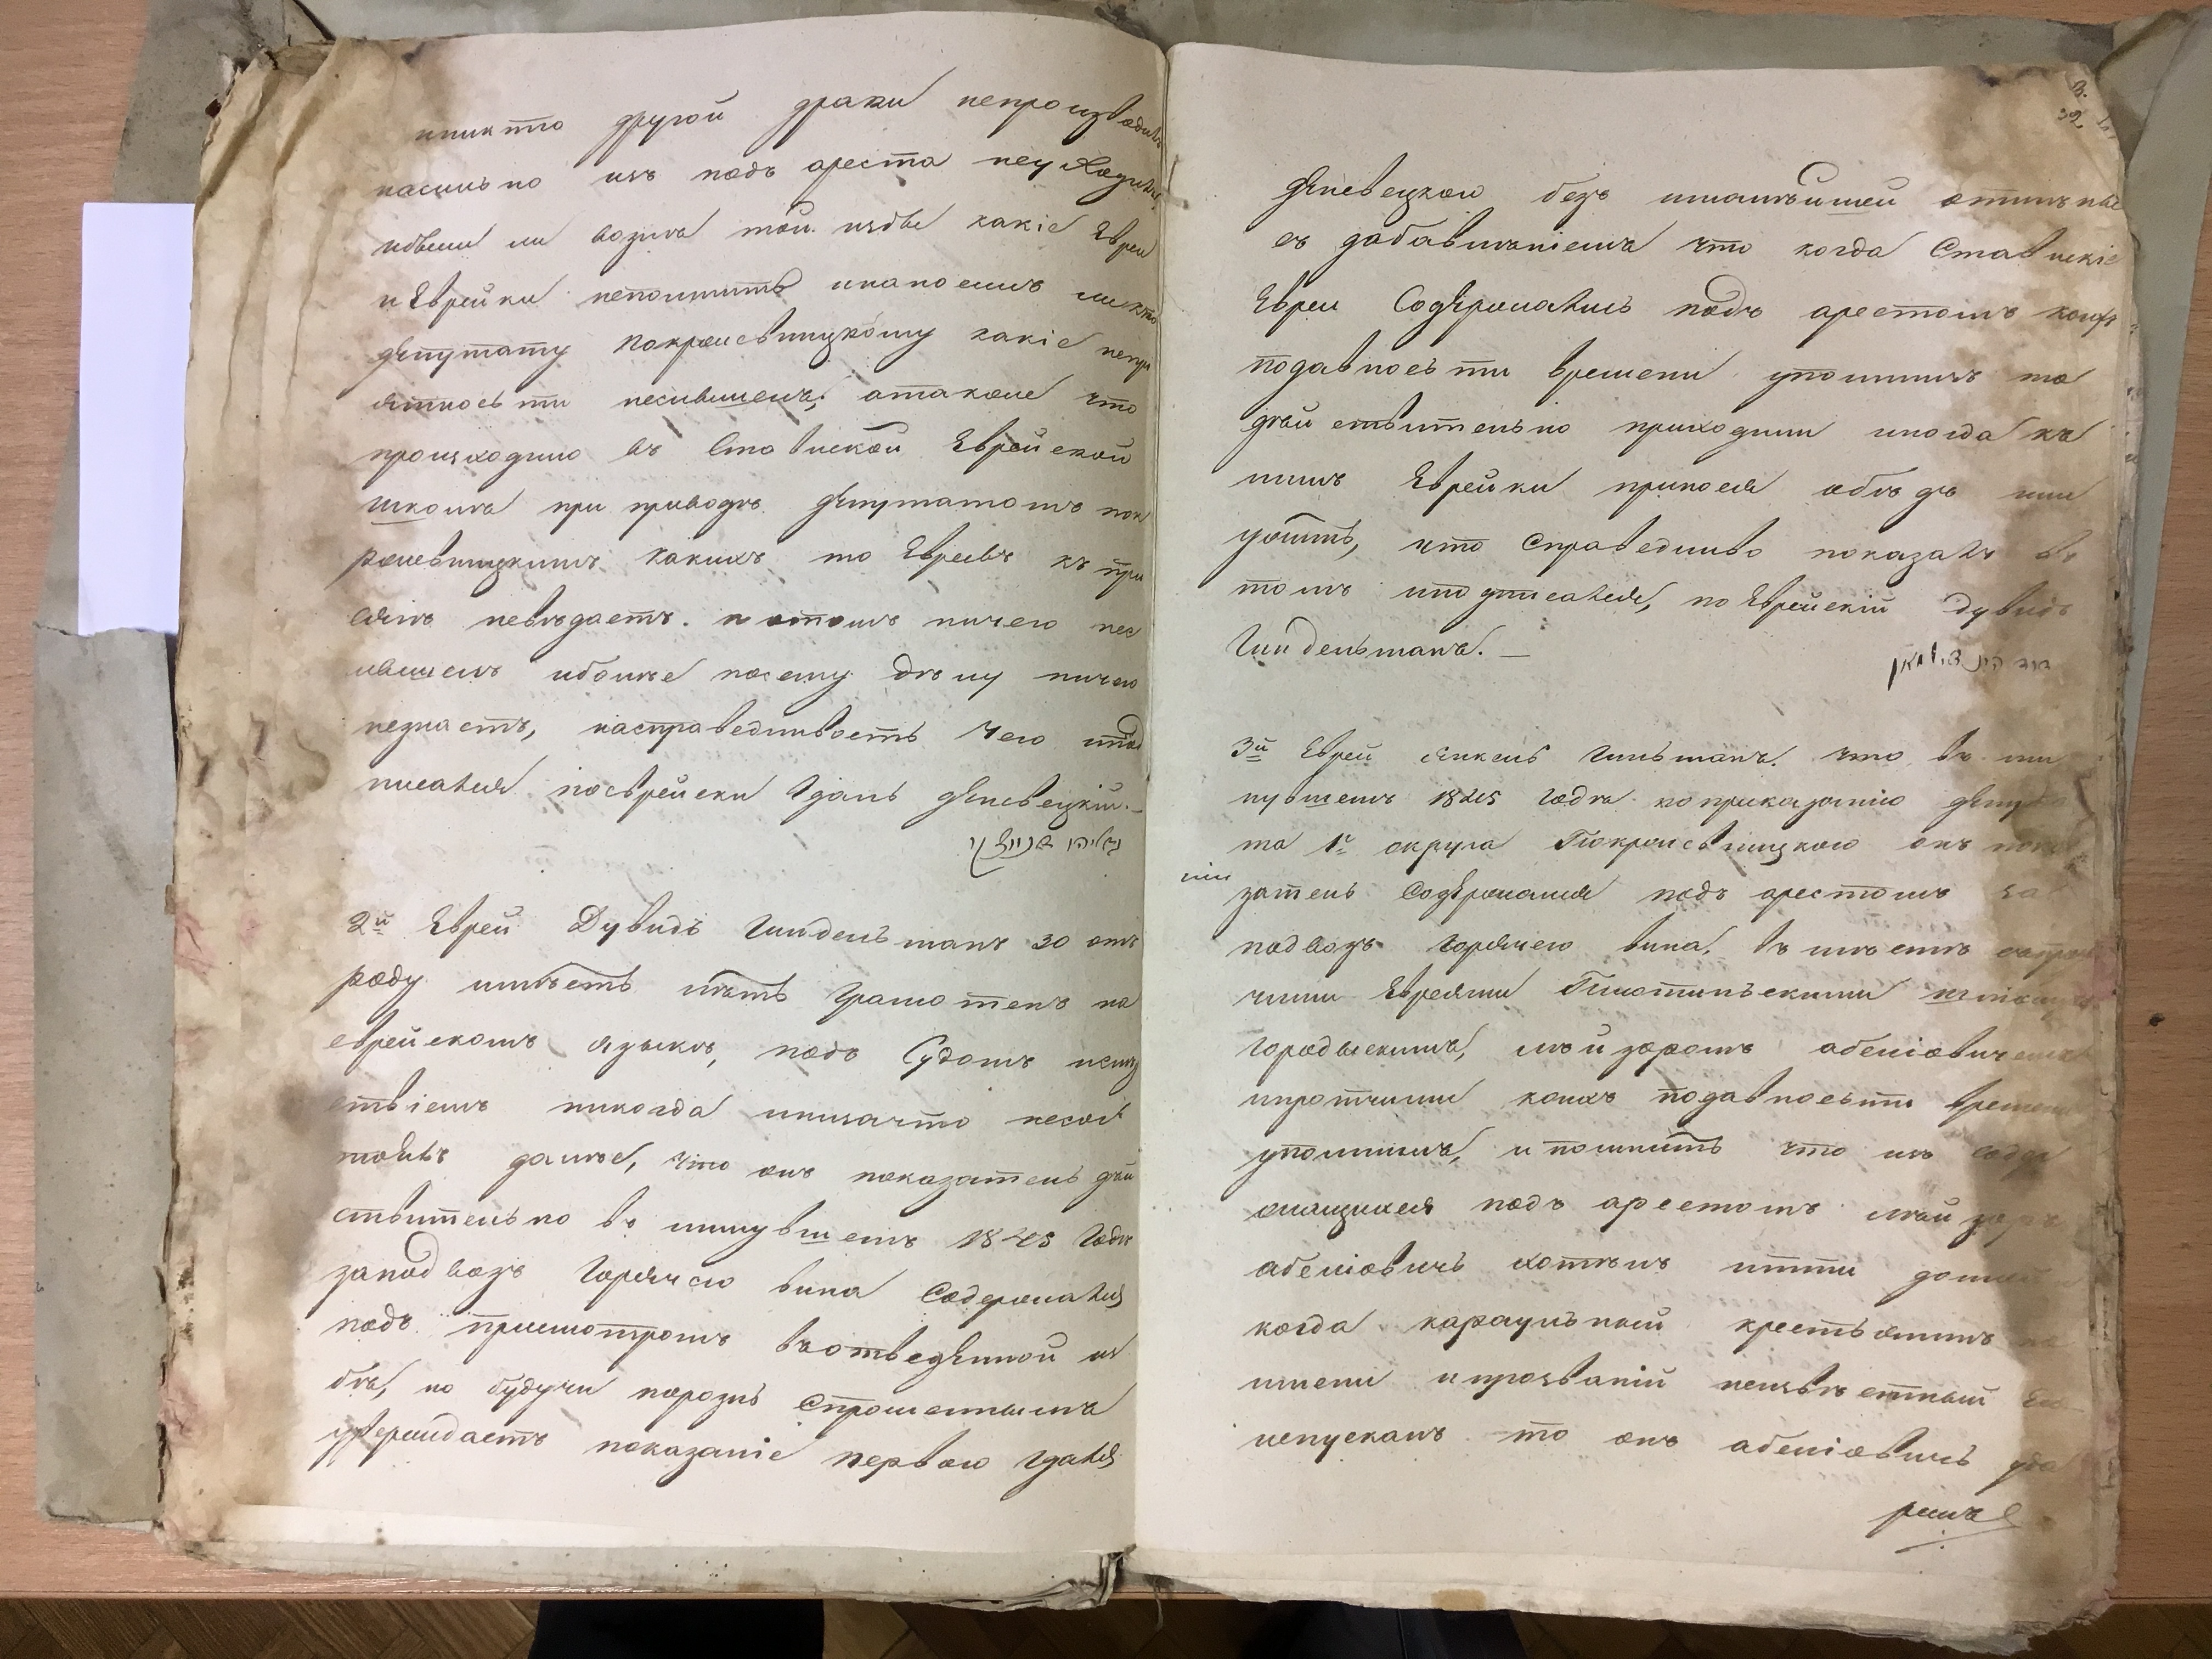 никто другой драки непроизводилъ
насильно изъ подъ ареста неуходилъ
небыли ли возлѣ той избы какіе Евреи
и Еврейки непомнитъ инапоенъ никто
депутату Покрошевницкому какіе непрі
ятности неслышелъ; атакже что
происходило въ Ставиской Еврейской
школѣ при приводѣ депутатомъ Пок
рошевницкимъ какихъ то Евреевъ къ при
сягѣ невѣдаетъ. и отомъ ничего нес
лышелъ иболѣе посему дѣлу ничего
незнаетъ, насправедливость чего ипод
писался поеврейски Гдаль
2й Еврей Дувидъ Гиндельманъ 30 отъ
роду имѣетъ лѣтъ Грамотенъ на
еврейскомъ языкѣ, подъ Судомъ ислѣд
ствіемъ никогда инизачто несос
тоялъ далѣе, что онъ показатель дѣй
ствительно въ минувшемъ 1845 Годѣ
заподвозъ Горячего вина Содержался
подъ присмотромъ въотведенной из
бѣ, но будучи порознь Спрошеннымъ
утверждаетъ показаніе первого Гдаля
32
без малѣйшей отмѣны
съ добавленіемъ что когда Ставискіе
Евреи Содержались подъ арестомъ коихъ
подавности времени упомнилъ то
дѣйствительно приходили иногда къ
нимъ Еврейки принося обѣдъ или
ужинъ, что Справедливо показалъ въ
томъ иподписался, по Еврейскій Дувидъ
Гиндельманъ.
3й Еврей Янкель Гильманъ. что въ ми
нувшемъ 1845 Годѣ поприказанію депута
та 1го округа Покрошевницкого онъ пока
затель Содержался подъ арестомъ за
подвозъ Горячего вина, вмѣстѣ съпро
чими Евреями
Городыскимъ, Лейзоромъ Абеліовичемъ
ипротчими коихъ подавности времени
упомнилъ, и помнитъ что изъ Содер
жащихся подъ арестомъ Лейзоръ
Абеліовичъ хотѣлъ итти домой
когда караульный крестьянинъ по
имени ипрозваній неизвѣстный его
непускалъ то онъ Абеліовичъ уда
рилъ